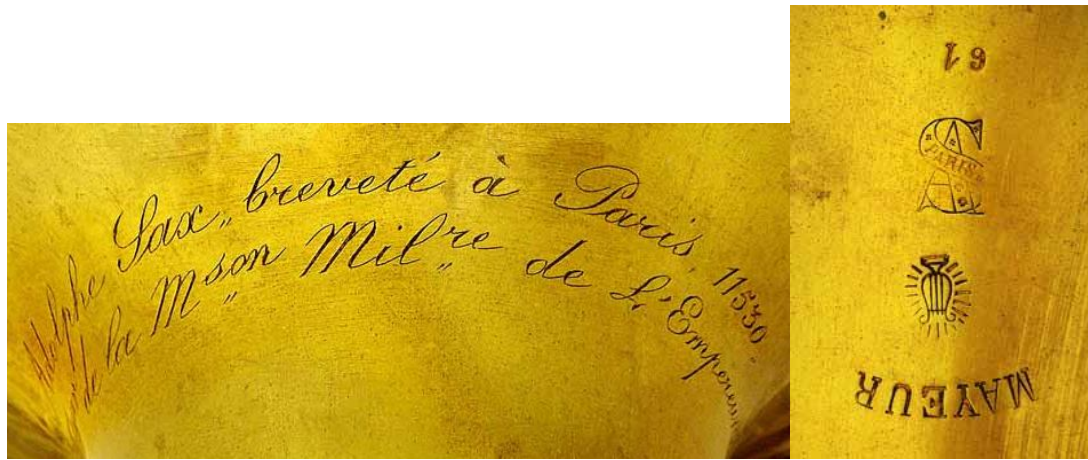 Adolphe Sax,, breveté à Paris, 11530,
de la Mson Milre de L'Empereur
61
PARIS
MAYEUR